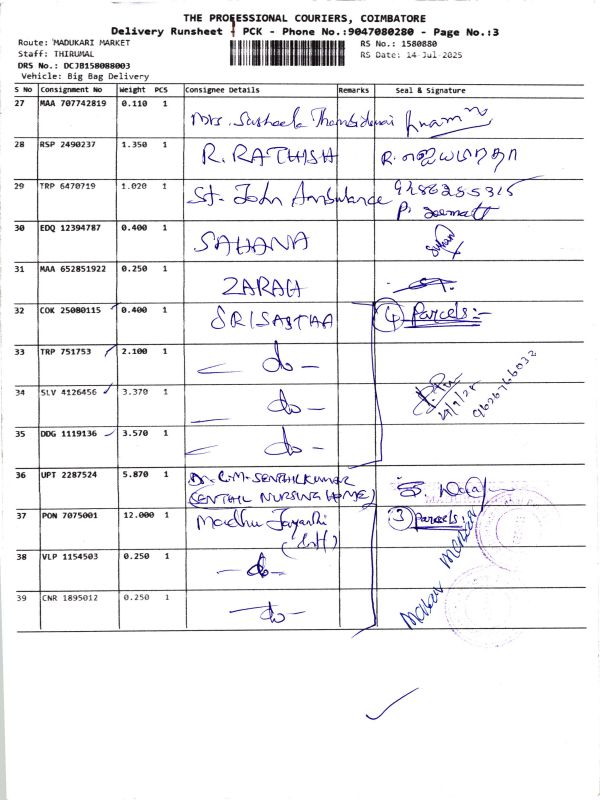 THE PROFESSIONAL COURIERS, COIMBATORE
Delivery Runsheet - PCK - Phone No.:9047080280 - Page No.:3
Route: MADUKARI MARKET
RS No.: 1580880
Staff: THIRUMAL
RS Date: 14-Jul-2025
DRS No.: DCJB158088003
Vehicle: Big Bag Delivery
S No Consignment No Weight PCS Consignee Details Remarks Seal & Signature
27 MAA 707742819 0.110 1 Mrs.
28 RSP 2490237 1.350 1 R. RATHISH
29 TRP 6470719 1.020 1 St. John Ambulance
P.
30 EDQ 12394787 0.400 1 SAHANA
31 MAA 652851922 0.250 1 ZARAH
32 COK 25080115 0.400 1 SRISASTHA 4 Parcels:-
33 TRP 751753 2.100 1 - do -
34 SLV 4126456 3.370 1 do - 9626766032
35 DDG 1119136 3.570 1 - do -
36 UPT 2287524 5.870 1 Dr. C.M. SENTHILKUMAR
(SENTHIL NURSING HOME)
37 PON 7075001 12.000 1 Madhu Jayanthi 3 Parcels:-
38 VLP 1154503 0.250 1 - do -
39 CNR 1895012 0.250 1 - do -